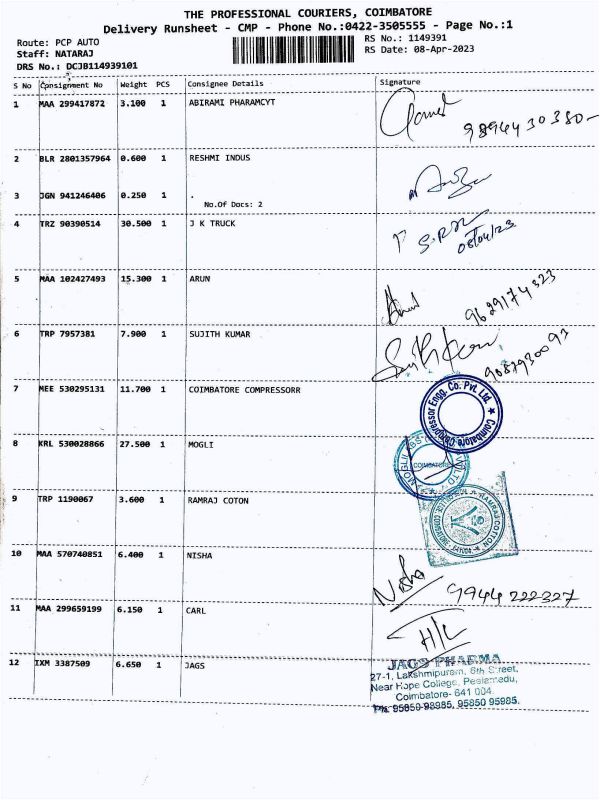 THE PROFESSIONAL COURIERS, COIMBATORE
Delivery Runsheet - CMP - Phone No.:0422-3505555 - Page No.:1
Route: PCP AUTO
RS No.: 1149391
Staff: NATARAJ
RS Date: 08-Apr-2023
DRS No.: DCJB114939101
S No Consignment No Weight PCS Consignee Details Signature
1 MAA 299417872 3.100 1 ABIRAMI PHARAMCYT
9894430380-
2 BLR 2801357964 0.600 1 RESHMI INDUS
3 JGN 941246406 0.250 1 .
No.Of Docs: 2
4 TRZ 90390514 30.500 1 J K TRUCK
08/04/23
5 MAA 102427493 15.300 1 ARUN
9629174323
6 TRP 7957381 7.900 1 SUJITH KUMAR
9087930093
7 MEE 530295131 11.700 1 COIMBATORE COMPRESSORR
Coimbatore Compressor Engg. Co. Pvt. Ltd. ★
8 KRL 530028866 27.500 1 MOGLI
COIMBATORE
9 TRP 1190067 3.600 1 RAMRAJ COTON
RAMRAJ COTTON
10 MAA 570740851 6.400 1 NISHA
Nisha 9944222327
11 MAA 299659199 6.150 1 CARL
H/L
12 IXM 3387509 6.650 1 JAGS
JAGS PHARMA
27-1, Lakshmipuram, 6th Street,
Near Hope College, Peelamedu,
Coimbatore- 641 004.
Ph: 95850 98985, 95850 95985.